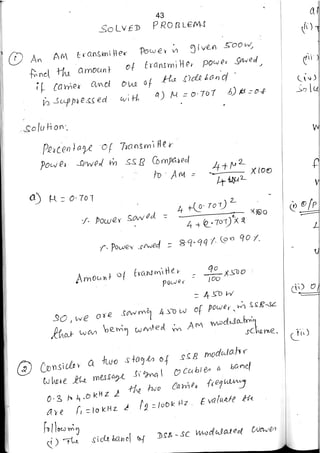 43
SOLVED PROBLEMS
① An AM transmitter Power is given 500w,
find the amount of transmitter power saved,
if carrier and one of the side band
is suppressed with a) M = 0.707 b)
Solution:
Percentage of Transmitter
Power saved in SSB Compared
to AM = 4+M² / 4+2M² X100
a) M = 0.707
%. Power saved = 4 +(0.707)² / 4 +(0.707)²x2 X100
%. Power saved = 89.99% (on 90%.
Amount of transmitter power = 90/100 x500
= 450 w
SO, we are saving 450w of power, in SSB-SC
that was being wasted in AM modulating
scheme.
② Consider a two stages of SSB modulator
where the message signal occupies a band
0.3 to 4.0KHz & the two Carrier frequency
are f₁ =10KHz & f₂ =100KHz. Evaluate the
following
(i) The side band of DSB-SC modulated